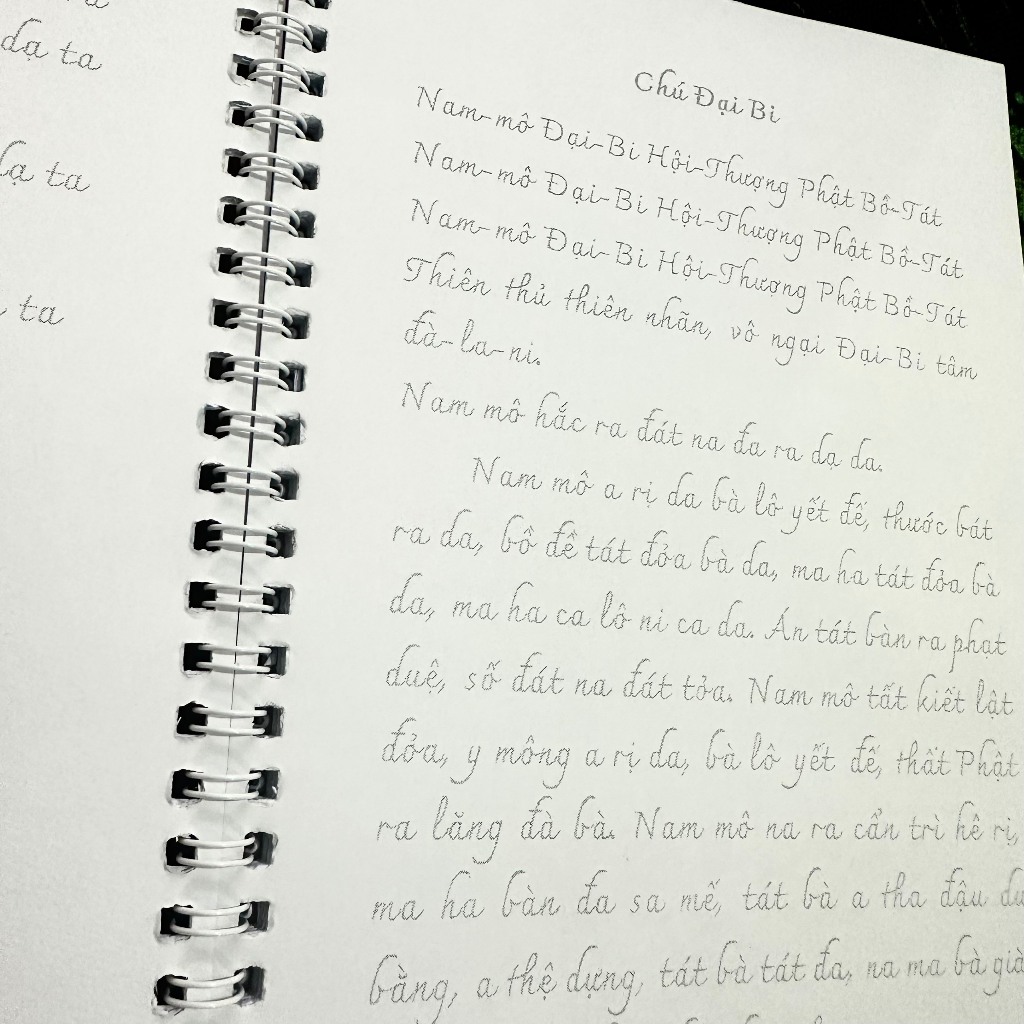 dạ ta
ta
ta
Chú Đại Bi
Nam-mô Đại-Bi Hội-Thượng Phật Bồ-Tát
Nam-mô Đại-Bi Hội-Thượng Phật Bồ-Tát
Nam-mô Đại-Bi Hội-Thượng Phật Bồ-Tát
Thiên thủ thiên nhãn, vô ngại Đại-Bi tâm
đà-la-ni.
Nam mô hắc ra đát na đa ra dạ da.
Nam mô a rị da bà lô yết đế, thước bát
ra da, bồ đề tát đỏa bà da, ma ha tát đỏa bà
da, ma ha ca lô ni ca da. Án tát bàn ra phạt
duệ, số đát na đát tỏa. Nam mô tất kiết lật
đỏa, y mông a rị da, bà lô yết đế, thất Phật
ra lăng đà bà. Nam mô na ra cẩn trì hê rị,
ma ha bàn đa sa mế, tát bà a tha đậu du
bằng, a thệ dựng, tát bà tát đa, na ma bà già